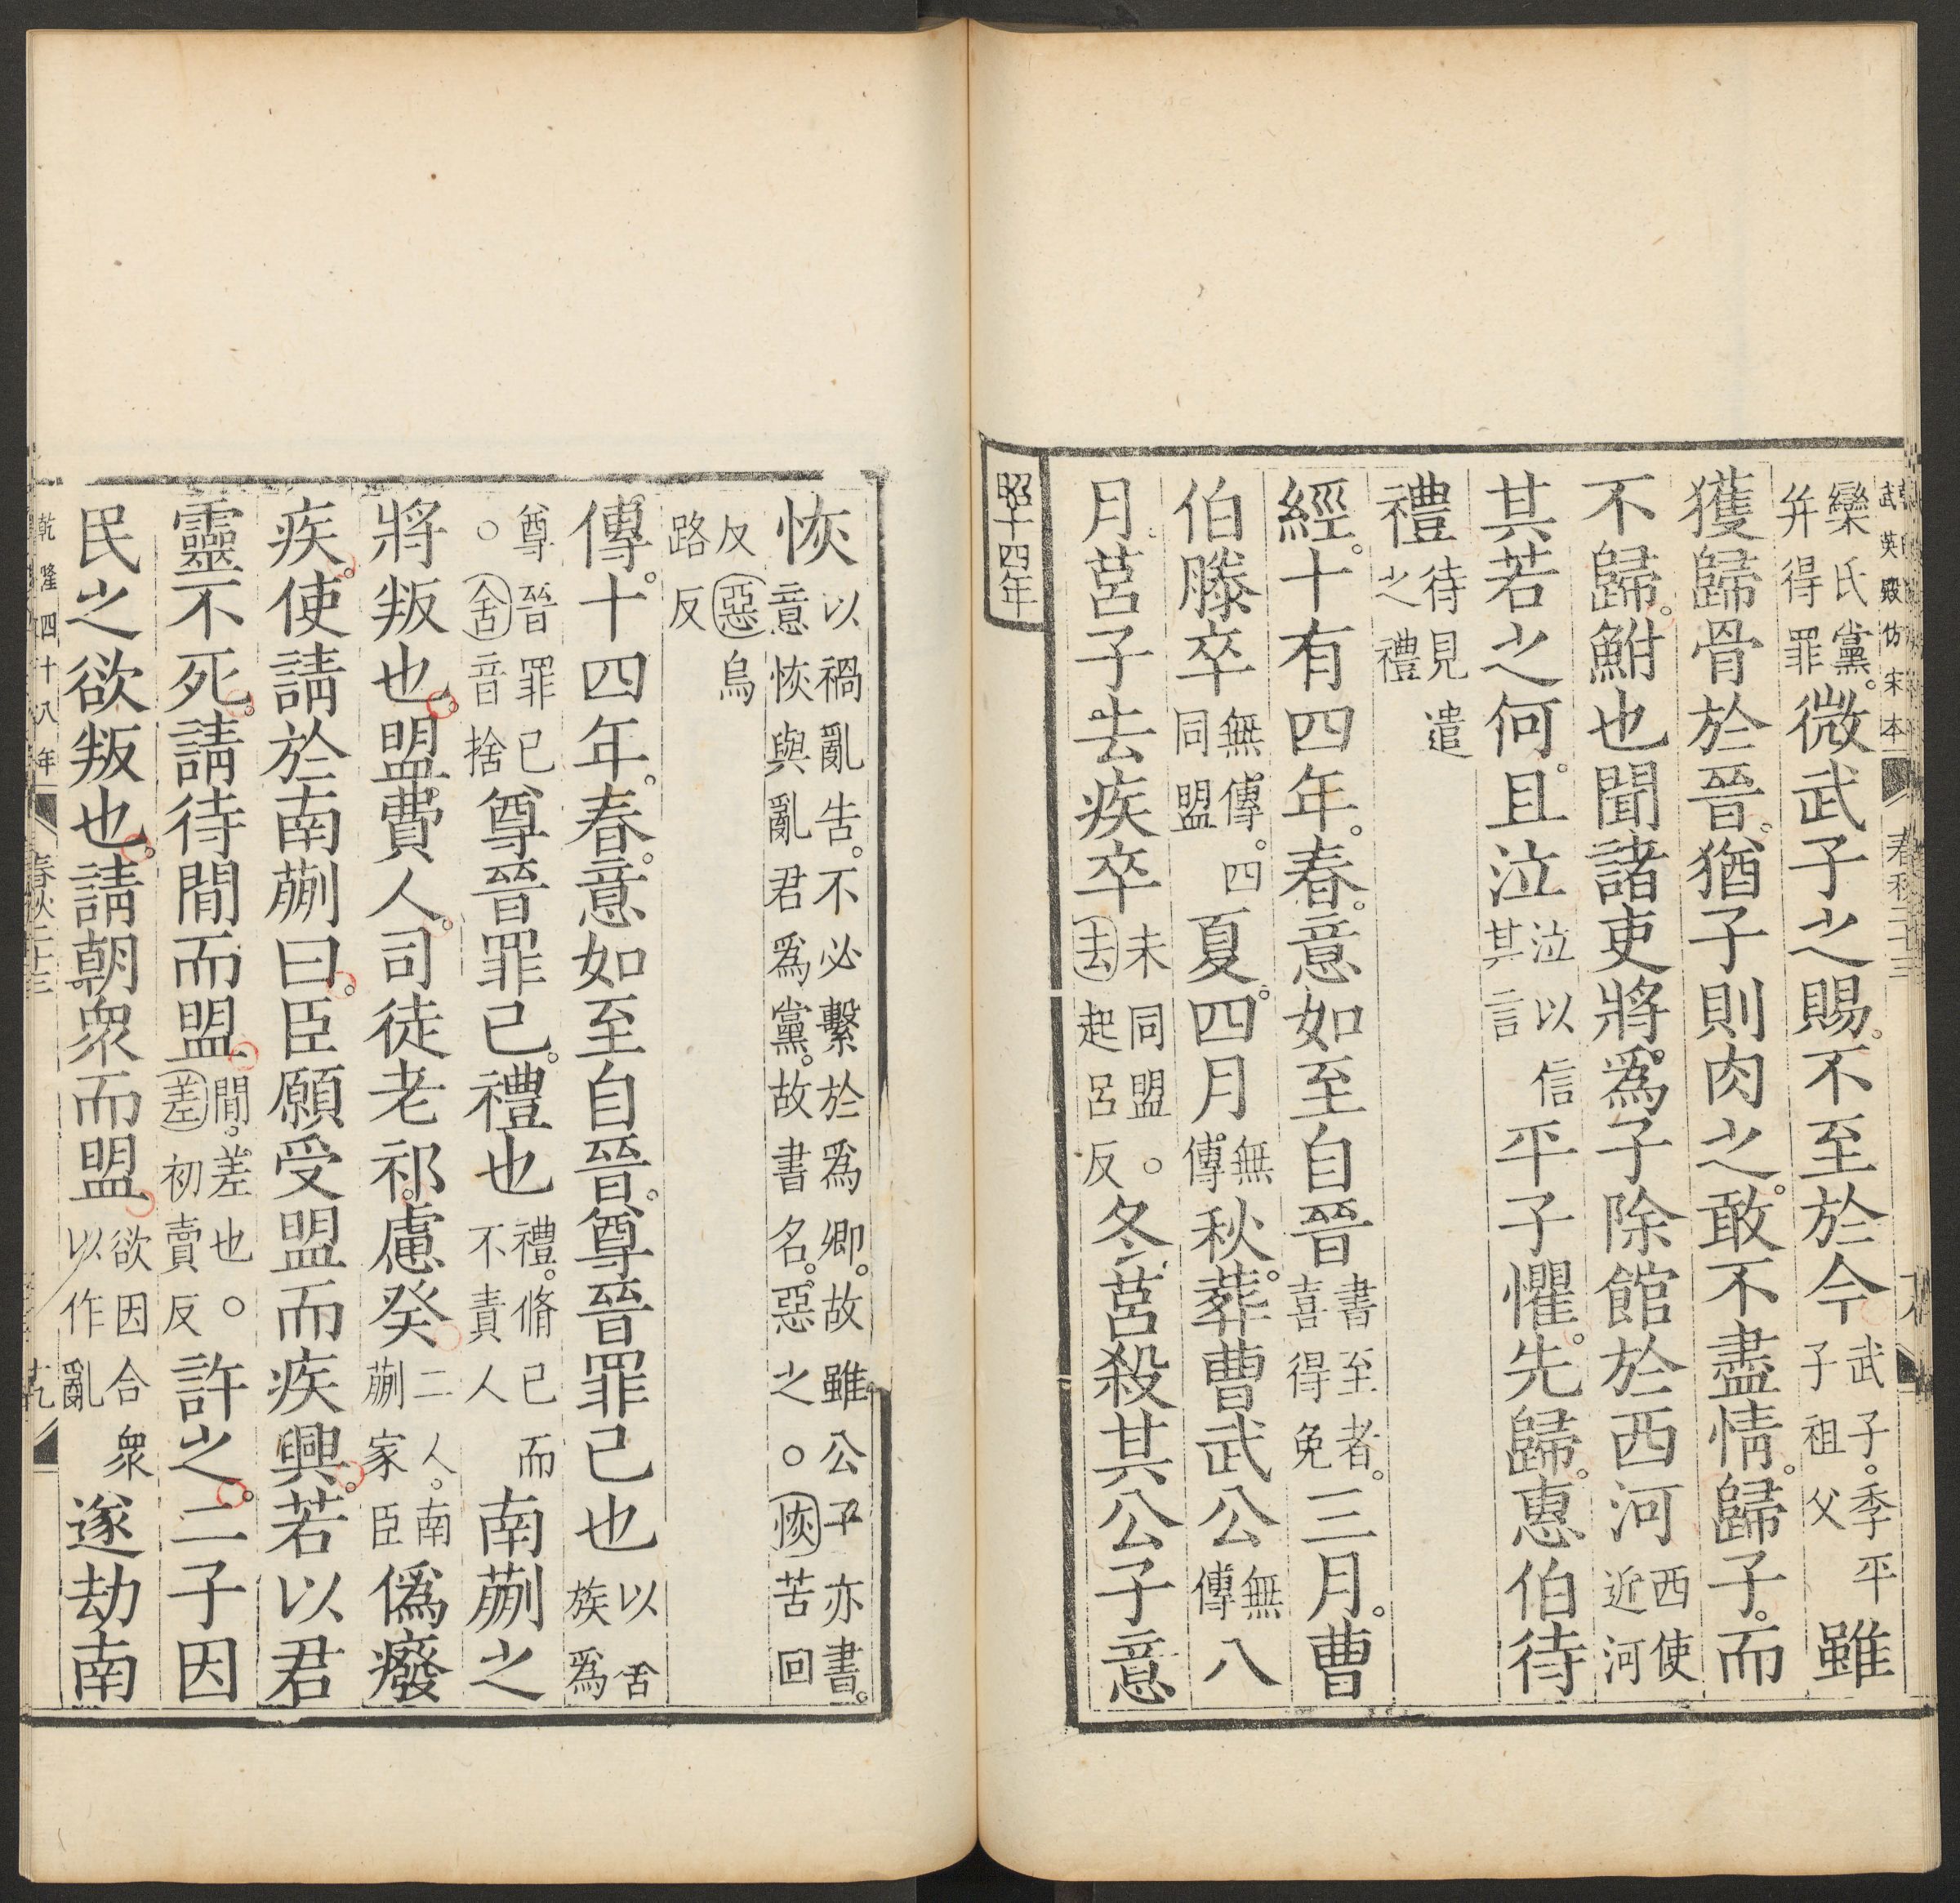 武英殿仿宋本
欒氏黨。
并得罪
微武子之賜。不至於今
武子。季平
子祖父
雖
獲歸骨於晉。猶子則肉之。敢不盡情。歸子。而
不歸。鮒也聞諸吏將爲子除館於西河
西使
近河
其若之何。且泣
泣以信
其言
平子懼。先歸。惠伯待
禮
待見遣
之禮
經。十有四年。春。意如至自晉
書至者。
喜得免
三月。曹
伯滕卒
無傳。四
同盟
夏。四月
無
傳
秋。葬曹武公
無
傳
八
月。莒子去疾卒
未同盟。○
去起呂反
冬。莒殺其公子意
昭十四年
恢
以禍亂告。不必繫於爲卿。故雖公子亦書。
意恢與亂君爲黨。故書名。惡之。○恢苦回
反惡烏
路反
傳。十四年。春。意如至自晉。尊晉罪己也
以舍
族爲
尊晉罪已
○舍音捨
尊晉罪己。禮也
禮。脩己而
不責人
南蒯之
將叛也。盟費人。司徒老祁。慮癸
二人。南
蒯家臣
僞癈
疾。使請於南蒯曰。臣願受盟而疾興。若以君
靈不死。請待間而盟。
間。差也。○
差初賣反
許之。二子因
民之欲叛也。請朝衆而盟。
欲因合衆
以作亂
遂劫南
乾隆四十八年
春秋二十三
十九